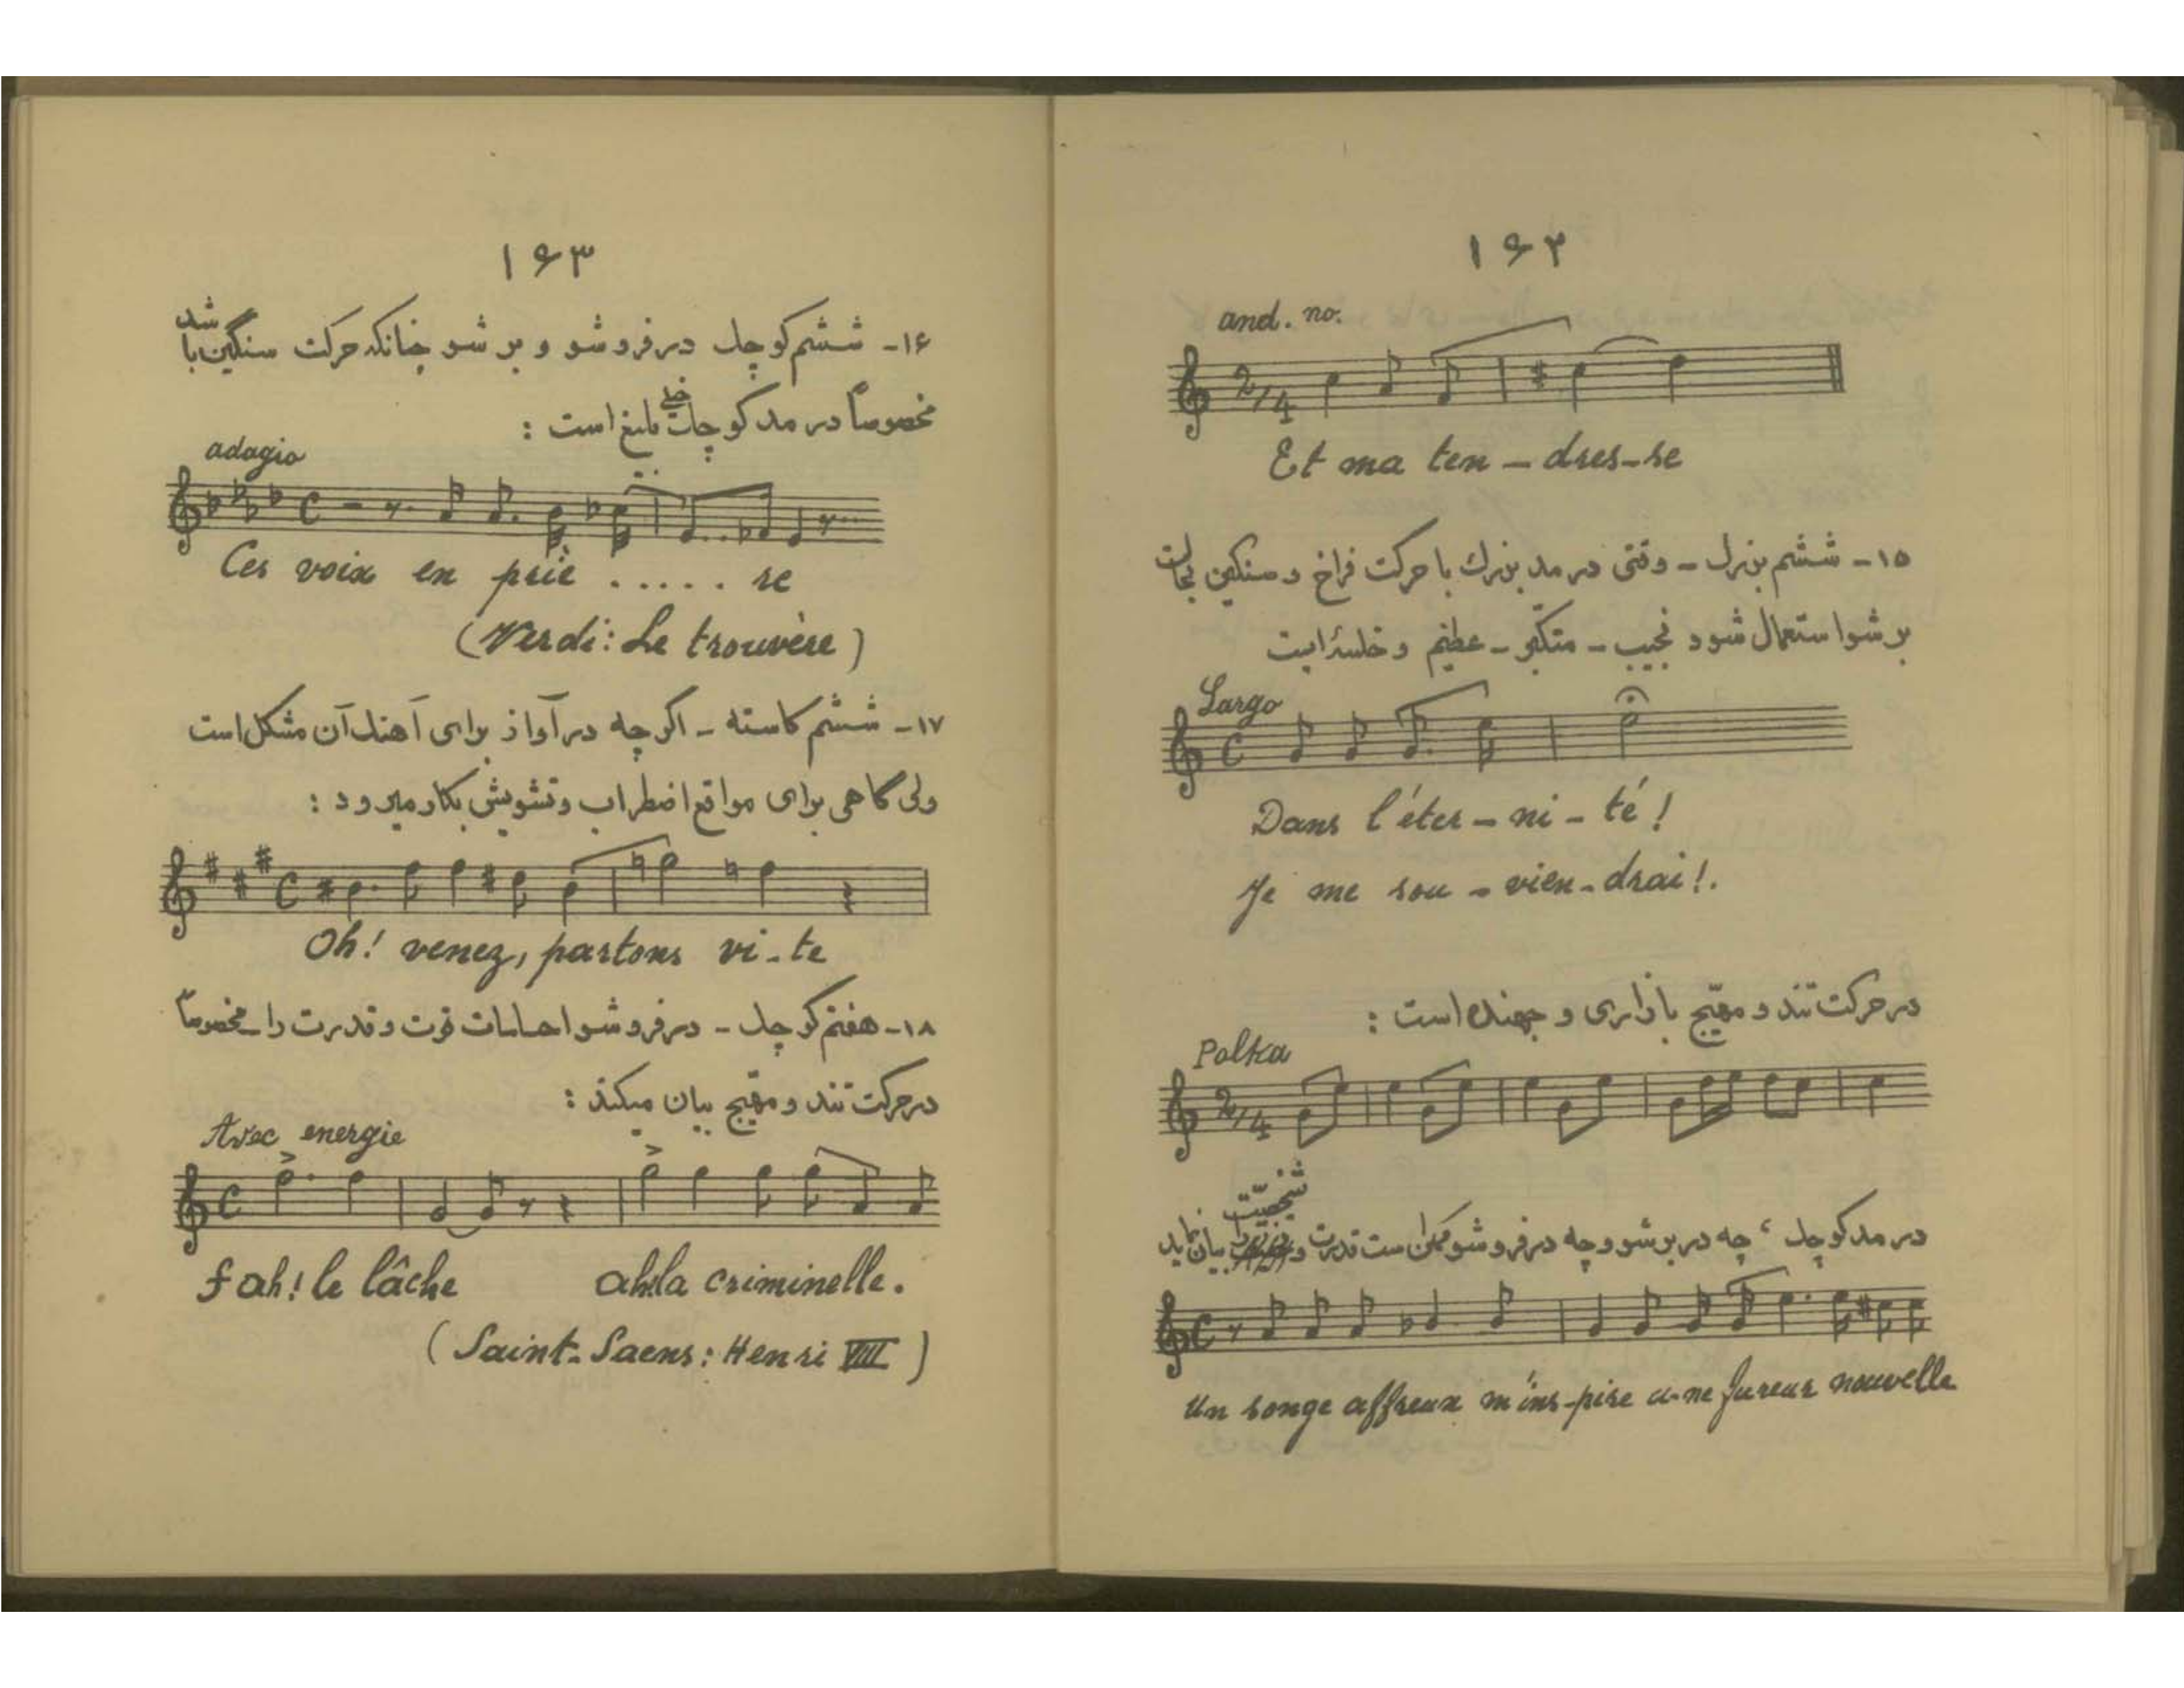 ۱۶۲
and. no.
2/4
Et ma ten - dres-se
۱۵- ششم بزرك - وقتی در مد بزرك با حرکت فراخ و سنگین بحالت
بر شو استعمال شود نجیب - متکبر - عظیم و خلسه‌ایست
Largo
C
Dans l'éter - ni - té !
Je me sou - vien - drai !.
در حرکت تند و مهیّج بازاری و جهنده است :
Polka
2/4
شخصیّت
در مد کوچك ، چه در بر شو و چه در فرو شو ممکن است قدرت و بیان نماید
C
Un songe affreux m'ins-pire u-ne fureur nouvelle
۱۶۳
۱۶- ششم کوچك در فرو شو و بر شو چنانکه حرکت سنگین باشد
مخصوصاً در مد کوچك خیلی بلیغ است :
adagio
C
Ces voix en priè ..... re
(Verdi: Le trouvère)
۱۷- ششم کاسته - اگر چه در آواز برای آهنك آن مشکل است
ولی گاهی برای مواقع اضطراب و تشویش بکار میرود :
C
Oh! venez, partons vi-te
۱۸- هفتم کوچك - در فرو شو احساسات قوت و قدرت را مخصوصاً
در حرکت تند و مهیّج بیان میکند :
Avec energie
C
f ah! le lâche ah! la criminelle.
(Saint-Saens: Henri VIII)